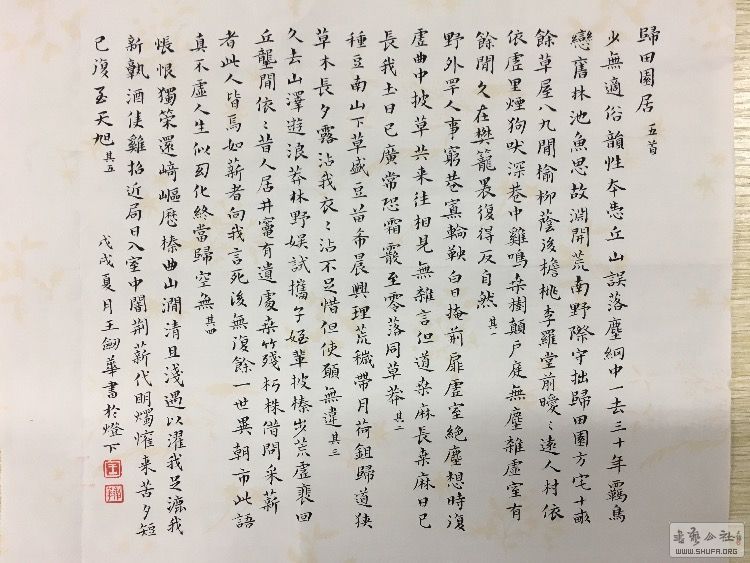 歸田園居 五首
少無適俗韻性本愛丘山誤落塵網中一去三十年羈鳥
戀舊林池魚思故淵開荒南野際守拙歸田園方宅十畝
餘草屋八九間榆柳蔭後檐桃李羅堂前曖〻遠人村依
依虛里煙狗吠深巷中雞鳴桑樹顛戶庭無塵雜虛室有
餘閒久在樊籠裏復得反自然 其一
野外罕人事窮巷寡輪鞅白日掩荊扉虛室絕塵想時復
虛曲中披草共來往相見無雜言但道桑麻長桑麻日已
長我土日已廣常恐霜霰至零落同草莽 其二
種豆南山下草盛豆苗希晨興理荒穢帶月荷鉏歸道狹
草木長夕露沾我衣〻沾不足惜但使願無違 其三
久去山澤遊浪莽林野娛試攜子姪輩披榛步荒虛裴回
丘壟間依〻昔人居井竈有遺處桑竹殘朽株借問采薪
者此人皆焉如薪者向我言死後無復餘一世異朝市此語
真不虛人生似幻化終當歸空無 其四
悵恨獨策還崎嶇歷榛曲山澗清且淺遇以濯我足漉我
新孰酒隻雞招近局日入室中闇荊薪代明燭懽來苦夕短
已復至天旭 其五 戊戌夏月王劍華書於燈下
王
書藝公社
WWW.SHUFA.ORG